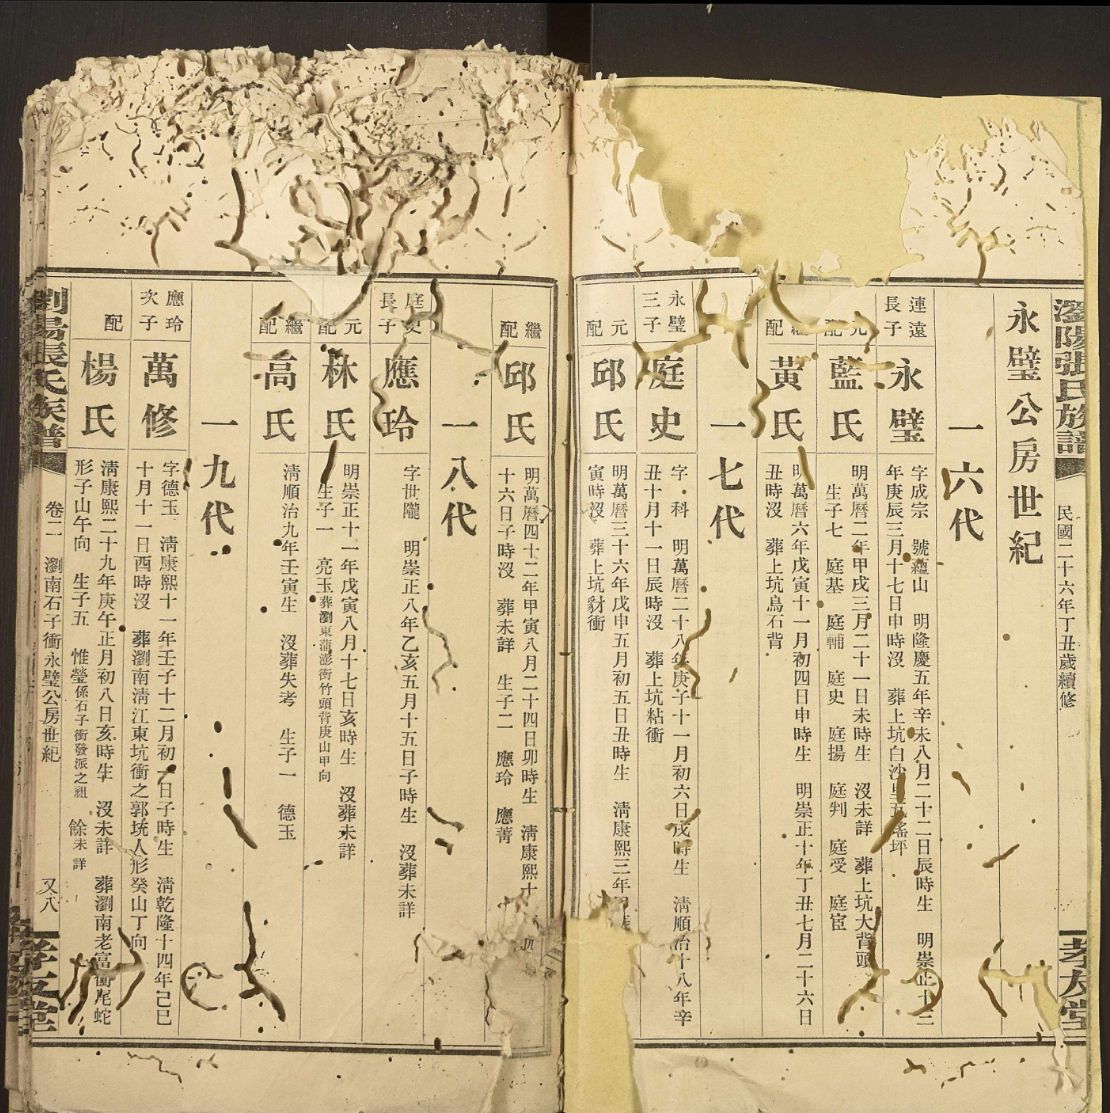 瀏陽張氏族譜
民國二十六年丁丑歲續修
孝友堂
永璧公房世紀
一六代
連遠長子
永璧
字成宗 號蘊山 明隆慶五年辛未八月二十二日辰時生 明崇正十三
年庚辰三月十七日申時沒 葬上坑白沙
元配
藍氏
明萬曆二年甲戌三月二十一日未時生 沒未詳 葬上坑大背頭
生子七 庭基 庭輔 庭史 庭揚 庭判 庭受 庭宦
繼配
黃氏
明萬曆六年戊寅十一月初四日申時生 明崇正十年丁丑七月二十六日
丑時沒 葬上坑鳥石背
一七代
永璧三子
庭史
字 科 明萬曆二十八年庚子十一月初六日戌時生 清順治十八年辛
丑十月十一日辰時沒 葬上坑粘衝
元配
邱氏
明萬曆三十六年戊申五月初五日丑時生 清康熙三年
寅時沒 葬上坑豺衝
繼配
邱氏
明萬曆四十二年甲寅八月二十四日卯時生 清康熙十
十六日子時沒 葬未詳 生子二 應玲 應菁
一八代
庭史長子
應玲
字世隴 明崇正八年乙亥五月十五日子時生 沒葬未詳
元配
林氏
明崇正十一年戊寅八月十七日亥時生 沒葬未詳
生子一 亮玉葬瀏東蒲澎衝竹頭背庚山甲向
繼配
高氏
清順治九年壬寅生 沒葬失考 生子一 德玉
一九代
應玲次子
萬修
字德玉 清康熙十一年壬子十二月初六日子時生 清乾隆十四年己巳
十月十一日酉時沒 葬瀏南清江東坑衝之郭坑人形癸山丁向
配
楊氏
清康熙二十九年庚午正月初八日亥時生 沒未詳 葬瀏南老富衝尾蛇
形子山午向 生子五 惟瑩係石子衝發派之祖 餘未詳
瀏陽張氏族譜
卷二 瀏南石子衝永璧公房世紀 又八
孝友堂